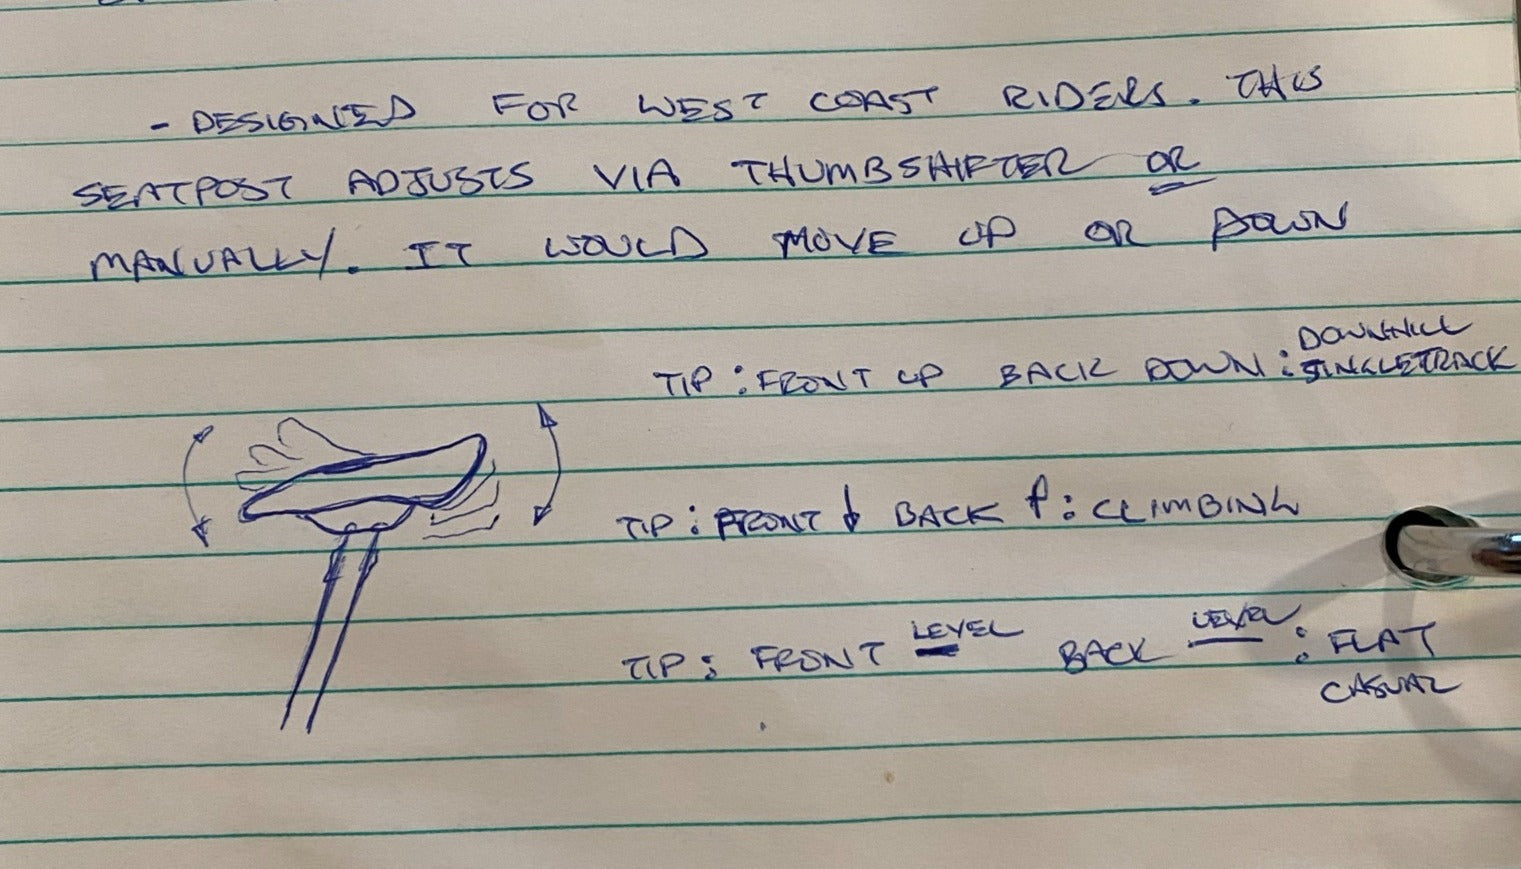 - DESIGNED FOR WEST COAST RIDERS. THIS
SEATPOST ADJUSTS VIA THUMBSHIFTER OR
MANUALLY. IT WOULD MOVE UP OR DOWN
TIP: FRONT UP BACK DOWN: DOWNHILL
SINGLETRACK
TIP: FRONT ↓ BACK ↑: CLIMBING
TIP: FRONT LEVEL BACK LEVEL: FLAT
CASUAL